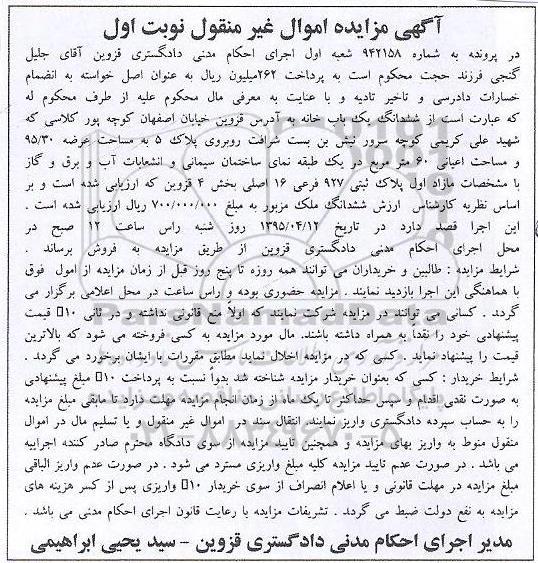 آگهی مزایده اموال غیر منقول نوبت اول
در پرونده به شماره ۹۴۲۱۵۸ شعبه اول اجرای احکام مدنی دادگستری قزوین آقای جلیل
گنجی فرزند حجت محکوم است به پرداخت ۲۶۲میلیون ریال به عنوان اصل خواسته به انضمام
خسارات دادرسی و تاخیر تادیه و با عنایت به معرفی مال محکوم علیه از طرف محکوم له
که عبارت است از ششدانگ یک باب خانه به آدرس قزوین خیابان اصفهان کوچه پور کلاسی که
شهید علی کریمی کوچه سرور نبش بن بست شرافت روبروی پلاک ۵ به مساحت عرصه ۹۵/۳۰
و مساحت اعیانی ۶۰ متر مربع در یک طبقه نمای ساختمان سیمانی و انشعابات آب و برق و گاز
با مشخصات مازاد اول پلاک ثبتی ۹۲۷ فرعی ۱۶ اصلی بخش ۴ قزوین که ارزیابی شده است و بر
اساس نظریه کارشناس ارزش ششدانگ ملک مزبور به مبلغ ۷۰۰/۰۰۰/۰۰۰ ریال ارزیابی شده است .
این اجرا قصد دارد در تاریخ ۱۳۹۵/۰۴/۱۲ روز شنبه راس ساعت ۱۲ صبح در
محل اجرای احکام مدنی دادگستری قزوین از طریق مزایده به فروش برساند .
شرایط مزایده : طالبین و خریداران می توانند همه روزه تا پنج روز قبل از زمان مزایده از اموال فوق
با هماهنگی این اجرا بازدید نمایند . مزایده حضوری بوده و راس ساعت در محل اعلامی برگزار می
گردد . کسانی می توانند در مزایده شرکت نمایند که اولاً منع قانونی نداشته و در ثانی ۱۰□ قیمت
پیشنهادی خود را نقداً به همراه داشته باشند. مال مورد مزایده به کسی فروخته می شود که بالاترین
قیمت را پیشنهاد نماید . کسی که در مزایده اخلال نماید مطابق مقررات با ایشان برخورد می گردد .
شرایط خریدار : کسی که بعنوان خریدار مزایده شناخته شد بدواً نسبت به پرداخت ۱۰□ مبلغ پیشنهادی
به صورت نقدی اقدام و سپس حداکثر تا یک ماه از زمان انجام مزایده مهلت دارد تا مابقی مبلغ مزایده
را به حساب سپرده دادگستری واریز نمایند. انتقال سند در اموال غیر منقول و یا تسلیم مال در اموال
منقول منوط به واریز بهای مزایده و همچنین تایید مزایده از سوی دادگاه محترم صادر کننده اجراییه
می باشد . در صورت عدم تایید مزایده کلیه مبلغ واریزی مسترد می شود . در صورت عدم واریز الباقی
مبلغ مزایده در مهلت قانونی و یا اعلام انصراف از سوی خریدار ۱۰□ واریزی پس از کسر هزینه های
مزایده به نفع دولت ضبط می گردد . تشریفات مزایده با رعایت قانون اجرای احکام مدنی می باشد .
مدیر اجرای احکام مدنی دادگستری قزوین – سید یحیی ابراهیمی